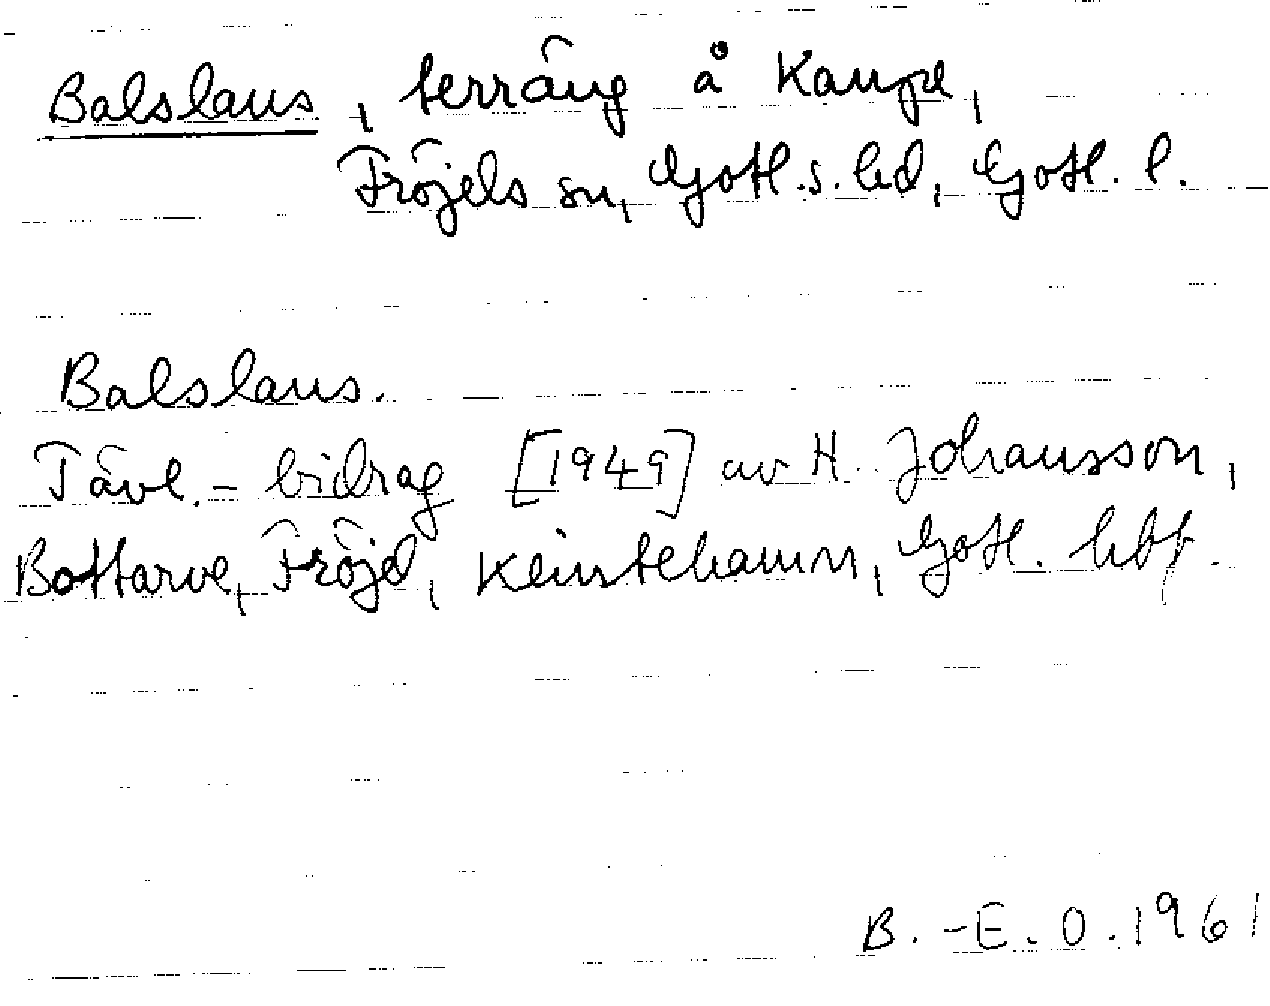 Balslaus, terräng å Kaupe,
Fröjels sn, Gotl. s. hd, Gotl. l.
Balslaus.
Tävl.-bidrag [1949] av H. Johansson,
Bottarve, Fröjel, Klintehamn, Gotl. hbf.
B.-E. O. 1961